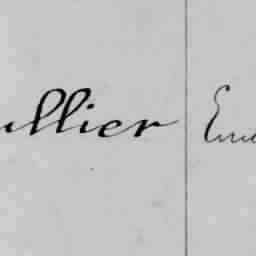 ullier Em